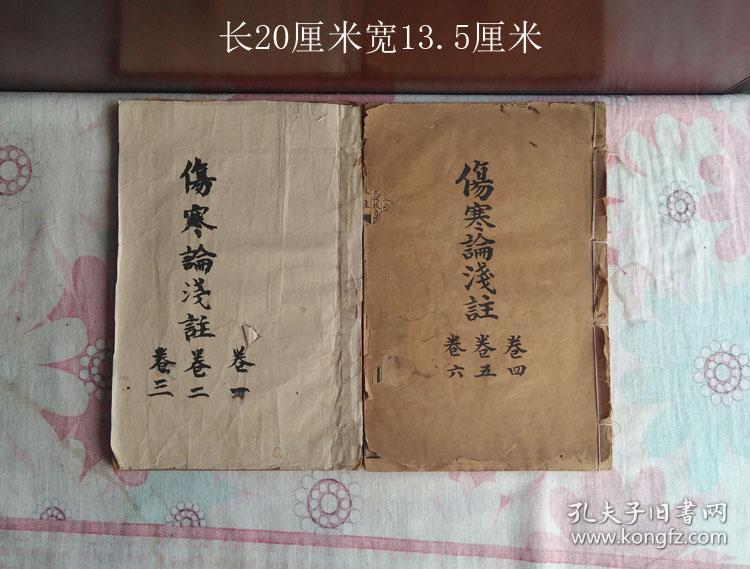 长20厘米宽13.5厘米
傷寒論淺註
卷一
卷二
卷三
傷寒論淺註
卷四
卷五
卷六
孔夫子旧书网
www.kongfz.com